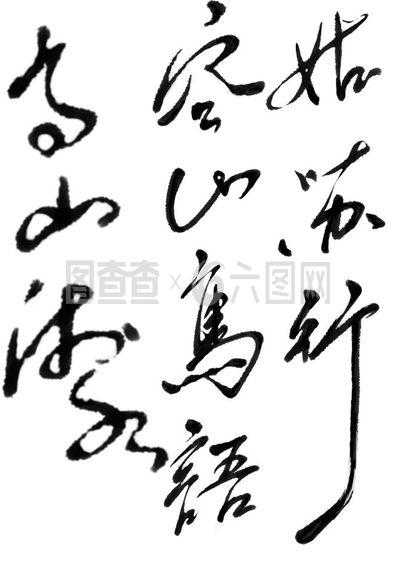 姑苏行
空山鳥語
高山流水
图查查×六图网